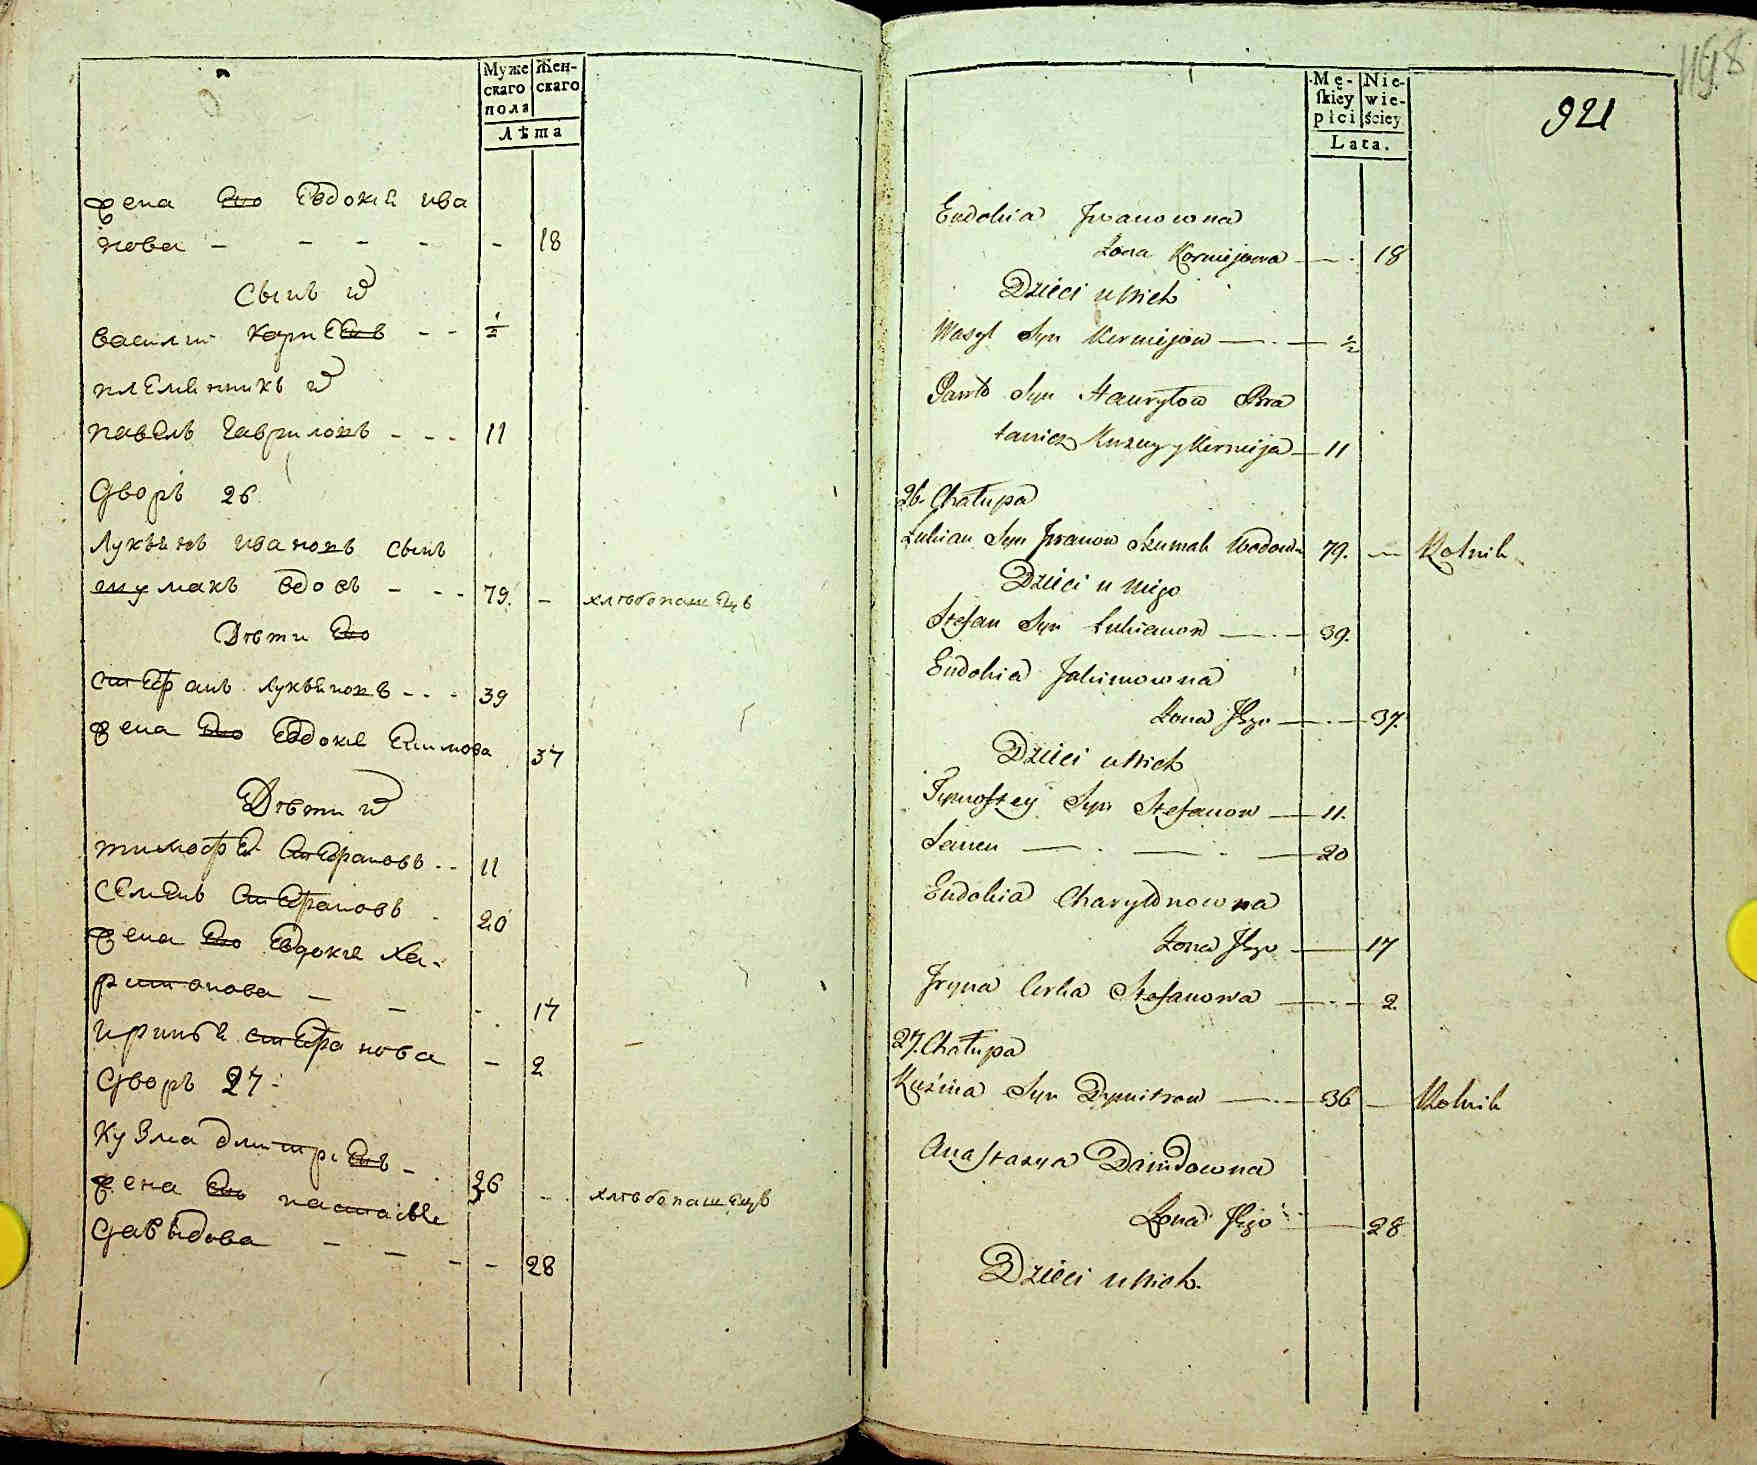 Муже
скаго
пола
Жен-
скаго
Лѣта
жена ево Евдокия ива
нова - - - - - 18
Сынъ их
василий корнеевъ - - ½
племянникъ их
павелъ гавриловъ - - - 11
Дворъ 26.
Лукьянъ ивановъ сынъ
шумакъ вдовъ - - - 79. - хлѣбопашецъ
Дѣти ево
стефанъ лукьяновъ - - - 39
жена ево Евдокия Екимова 37
Дѣти их
тимофей Стефановъ - - 11
Семенъ Стефановъ - 20
жена ево Евдокия Ха-
ритонова - - - 17
иринья стефанова - 2
Дворъ 27.
Кузма дмитреевъ - 36 - хлѣбопашецъ
жена ево настасья
Давыдова - - - - 28
1198
921
Mę-
skiey
płci
Nie-
wie-
ściey
Lata.
Eudokia Jwanowna
Żona Kornijowa - 18
Dzieci u Nich
Wasyl Syn Kornijow - ½
Pawło Syn Hawryłow Bra
tanicz Kuzmy y Kornija - 11
26. Chałupa
Łukian Syn Jwanow Szumak Wdowiec 79. - Rolnik
Dzieci u niego
Stefan Syn Łukianow - 39.
Eudokia Jakimowna
Żona Jego - 37.
Dzieci u Nich
Tymofzey Syn Stefanow - 11.
Semen - - - 20
Eudokia Charytonowna
Żona Jego - 17
Jryna Corka Stefanowa - 2
27. Chałupa
Kuźma Syn Dymitrow - 36 - Rolnik
Anastazya Dawidowna
Żona Jego - 28
Dzieci u Nich.